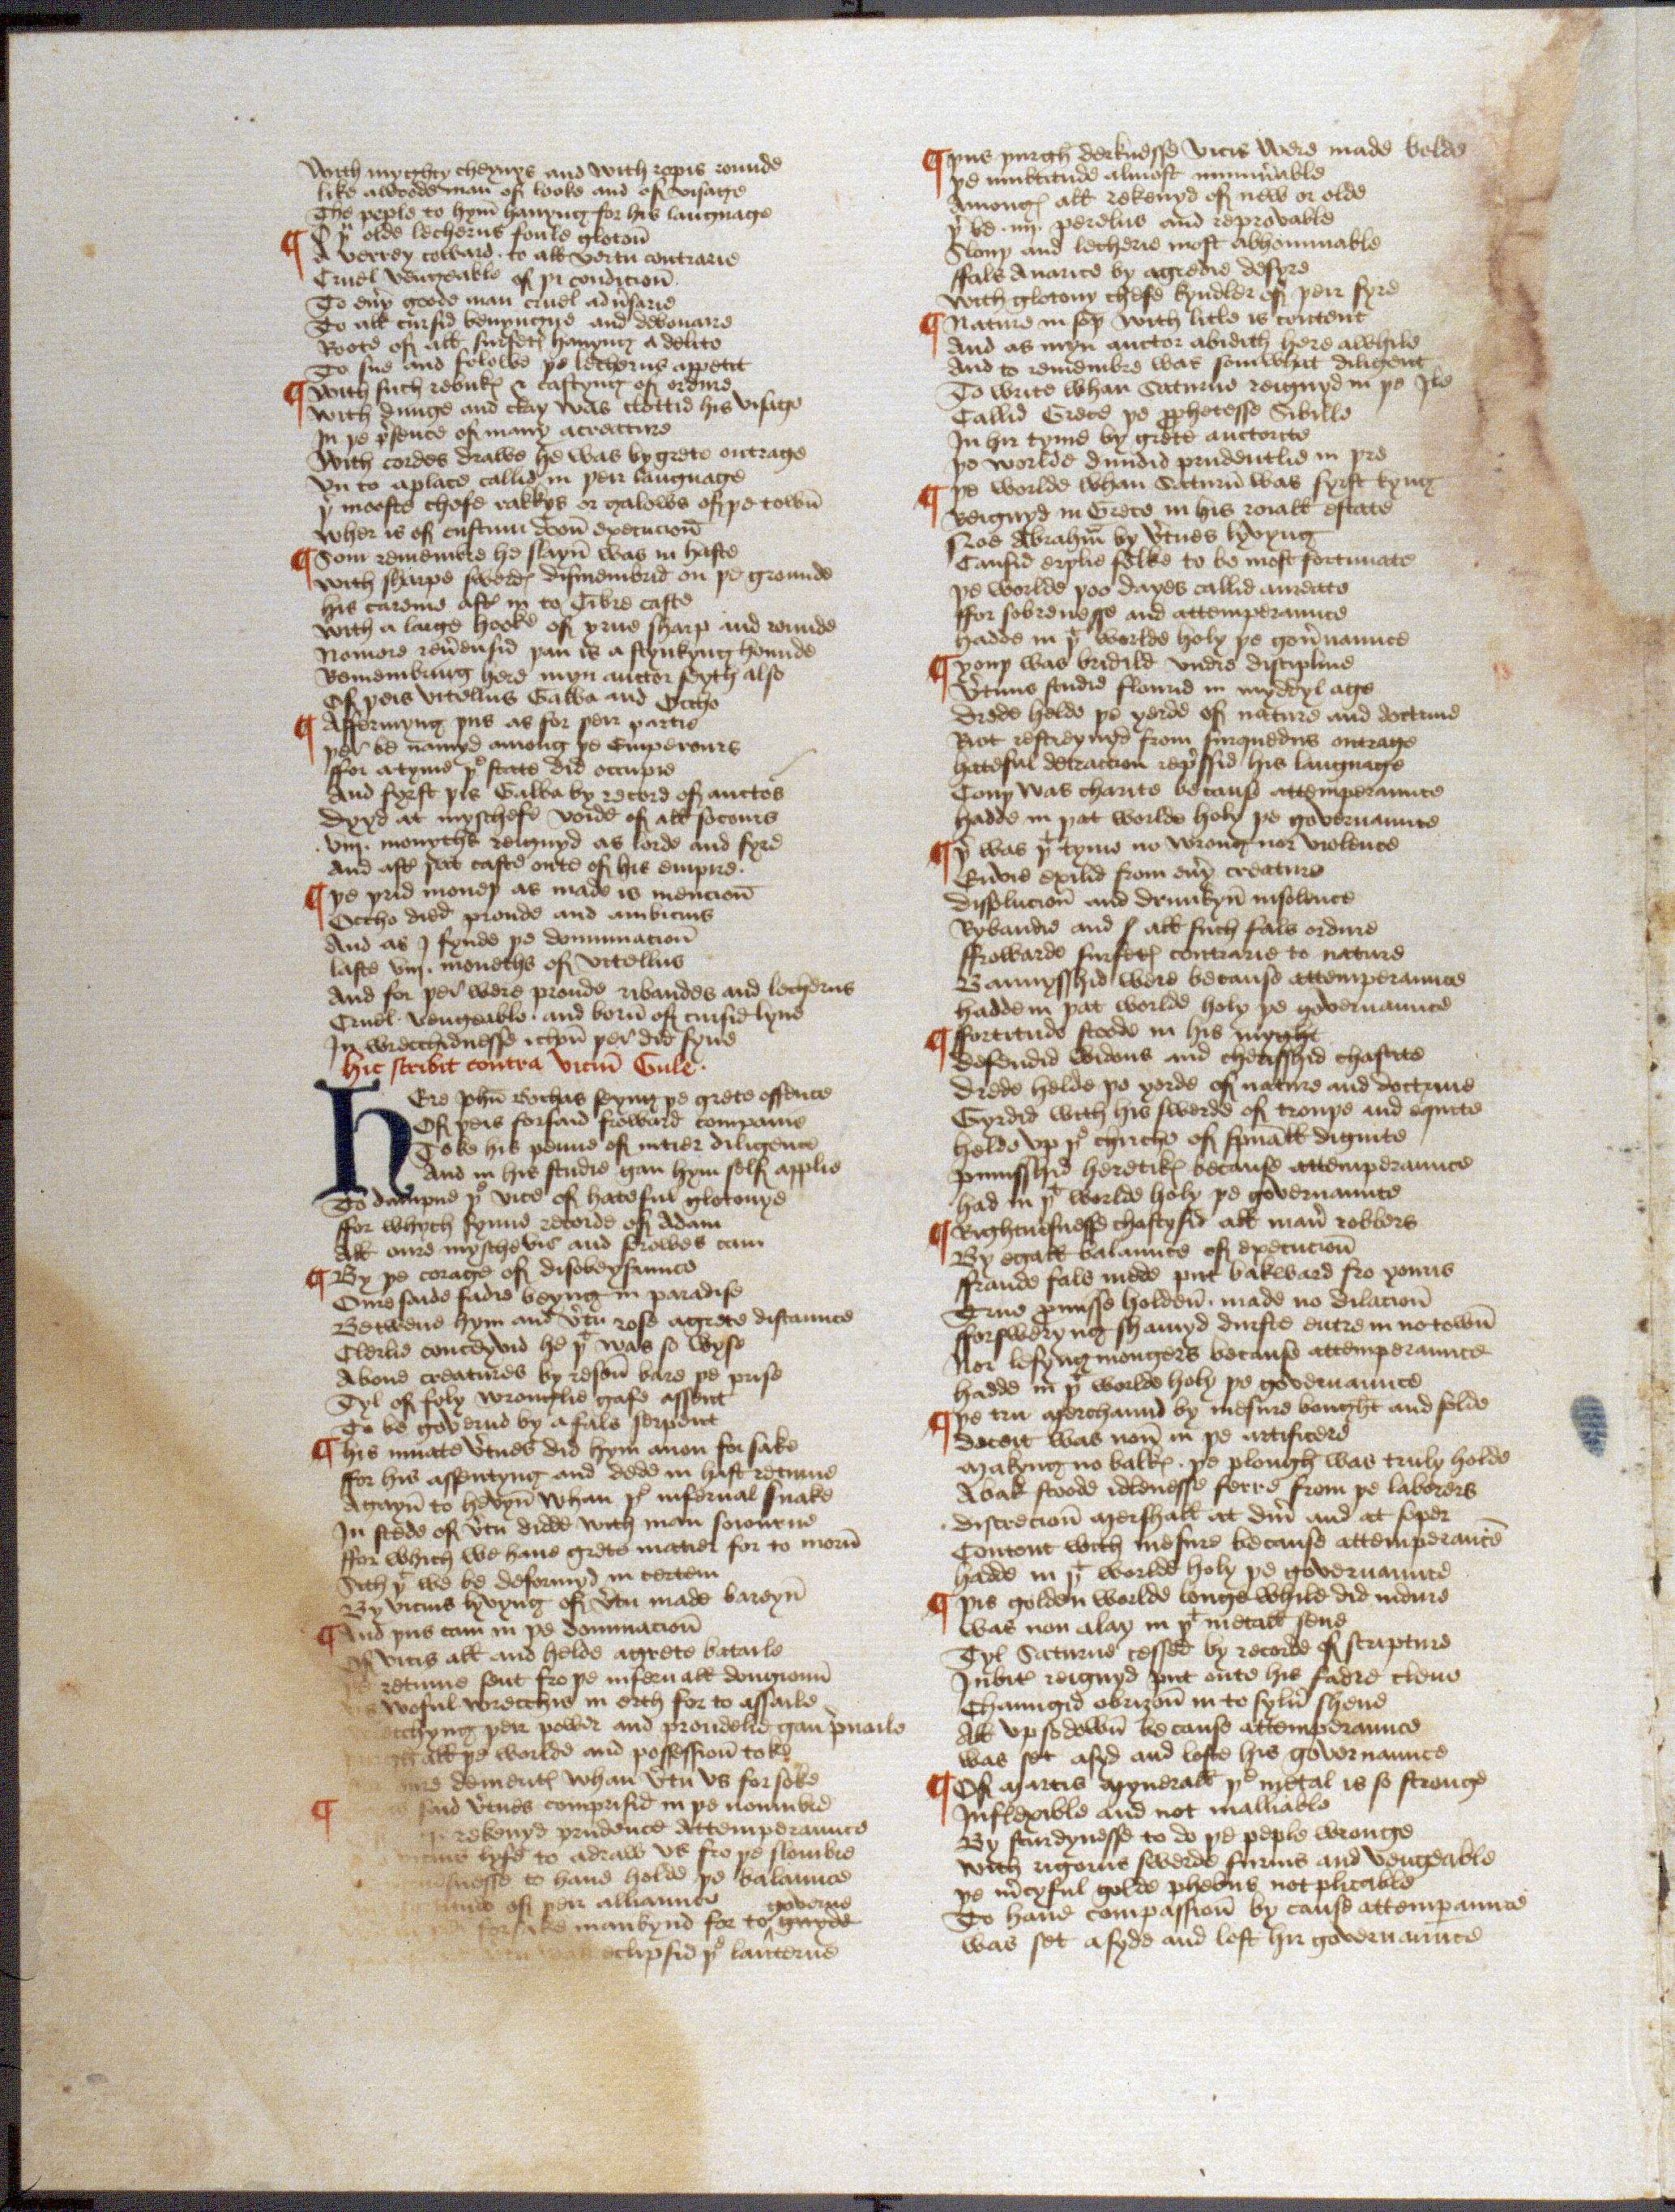 With myghty cheynys and with ropis rounde
like a woode man of looke and of visage
The peple to hym hauyng for his langnage
O þu olde lecherus foule glotoū
¶ A verrey coward . to all vertu contrarie
Cruel vengeable of þi condicioū
To eu̾y goode man cruel adu̾sarie
To all cursid benyngne and debonaire
Roote of all surfetꝭ hauyng a delite
To sue and folowe þe lecherus appetit
¶ With such rebukꝭ & castyng of ordure
With dunge and clay was clottid his visage
In þe p̾sence of many a creature
With cordes drawe he was by grete outrage
Vn to a place callid in þeir langnage
þe mooste chefe rakkys or galows of þe towū
Wher is of custum doū execucioū
¶ Som remembre he slayū was in haste
With sharpe swerdꝭ dismembrid on þe grounde
his careine aftꝭ in to Tibre caste
With a large hooke of yrne sharp and rounde
Nomore reu̾ensid þan is a stynkyng hounde
Remembring here myn auctor seyth also
Of þeis Vitellius Galba and Ottho
¶ Affermyng þus as for þeir partie
þei be namyd among þe Emperours
ffor a tyme þe state did occupie
And fyrst þis Galba by record of auctos
Dyyd at myschefe voide of all socours
.viij. monythe reignyd as lorde and syre
And aftꝭ þat caste oute of his empire.
¶ þe þrid moneþ as made is mencioū
Ottho died proude and ambicius
And as J fynde þe dominacioū
laste viij. moneths of Vitellius
And for þei were proude ribaudes and lecherus
Cruel . vengeable . and borū of cursid lyne
In wrecchidnesse ichoū þei did fyne
hic scribit contra viciū Gule .
hEre Joħn Bochas seyng þe grete offence
Of þeis forsaid froward companie
Toke his penne of intier diligence
And in his studie gan hym self applie
To dampne þe vice of hateful glotonye
ffor whych synne recorde of Adam
All oure myschevis and sorowes cam
¶ By þe corage of disobeysaunce
Oure saide fadre beyng in paradise
Betwene hym and v̾tu rose a grete distaunce
Clerlie conceyvid he þt was so wyse
Aboue creatures by resoū bare þe prise
Tyl of foly wronglie gafe assent
To be governd by a fals serpent
¶ his innate v̾tues did hym anon for sake
ffor his assentyng and dede in hast retinue
Agayū to hevyū whan þe infernal snake
In stede of v̾tu didde with man soiourne
ffor which we haue grete matier for to morū
Sith þt we be deformyd in certein
By vicius lyvyng of v̾tu made bareyū
¶ And þus cam in þe dominacioū
Of vicis all and helde a grete bataile
retinue sent fro þe infernall dongioun
woful wrecchis in erth for to assaile
þeir power and proudelie gan p̾uaile
all þe worlde and possessioū toke
demeritꝭ whan v̾tu vs forsoke
¶ said v̾tues comprisid in þe nombre
rekenyd prudence Attemperaunce
lyfe to adraw vs fro þe slombre
to haue holde þe balaunce
of þeir alliaunce
governe
forsake mankynd for to gwyde
eclipsid þe lanterne
¶ þus þurgh derknesse vicis were made bolde
þe multitude almost innu̾able
Amongꝭ all rekenyd of new or olde
þ̾ be .iij. perelus and reprovable
Slouþ and lecherie most abhominable
ffals Auarice by a gredie desyre
With glotony chefe kyndler of þeir fyre
¶ Nature in soþ with litle is content
And as myn auctor abidith here a while
And to remembre was somwhat diligent
To write whan Saturne reignyd in þe Jle
Callid Grece þe ꝓphetesse Sibille
In hir tyme by grete auctorite
þe worlde diuidid prudentlie in þre
¶ þe worlde whan Saturū was fyrst kyng
Reignyd in Grece in his roiall estate
Noe Abrahm̄ by v̾tues lyvyng
Causid erþlie folke to be most fortunate
þe worlde þoo dayes callid aureate
ffor sobrenesse and attemperaunce
hadde in þt worlde holy þe gou̾naunce
¶ youþ was bridild vndre discipline
V̾tuus studie flourid in myddyl age
Drede helde þe yerde of nature and doctrine
Riot restreynyd from surquedus outrage
hateful detraccion rep̾ssid his langnage
Couþ was charite because attemperaunce
hadde in þat worlde holy þe governaunce
¶ þ̾ was þt tyme no wrong nor violence
Envie exilid from eu̾y creature
Dissolucioū and drunkyū insolence
Rybaudie and all such fals ordure
ffrowarde surfetꝭ contrarie to nature
Bannysshid were because attemperaunce
hadde in þat worlde holy þe governaunce
¶ ffortitude stoode in his myght
defendid widous and cherisshid chastite
Drede helde þe yerde of nature and doctrine
Gyrdid with his swerde of trouþe and equite
helde vp þe chirche of sp̄uall dignite
punisshid heretikꝭ because attemperaunce
had in þt worlde holy þe governaunce
¶ Rightuisnesse chastysid all man̾ robbers
By egall balaunce of execucioū
ffraude fals mede put bakward fro yours
True p̾misse holdeū . made no dilacioū
fforsweryng shamyd durste entre in no towū
Nor lesyngmongers because attemperaunce
hadde in þt worlde holy þe governaunce
¶ þe tru merchaund by mesure bought and solde
Deceit was noū in þe artificers
makyng no balkꝭ . þe plough was truly holde
Abak stoode idlenesse ferre from þe laborers
.discrecioū mershall at din̾ and at soper
Content with mesure because attemperan̄ce
hadde in þt worlde holy þe governaunce
¶ þis golden worlde longe while did indure
Was non alay in þt metall sene
Tyl Saturne cessed by recorde of scripture
Jubitꝭ reignyd put oute his fadre clene
Chaungid obrizoū in to sylu̾ shene
All vp sodowū be cause attemperaunce
was set asyd and lofte his governaunce
¶ Of martis mynerall þe metal is so stronge
Inflexible and not malliable
By sturdynesse to do þe peple wronge
With rigorus swerde furius and vengeable
þe m̾cyful golde phebus not plicable
To haue compassioū by cause attemꝑaunce
was set a syde and loft hir governaunce